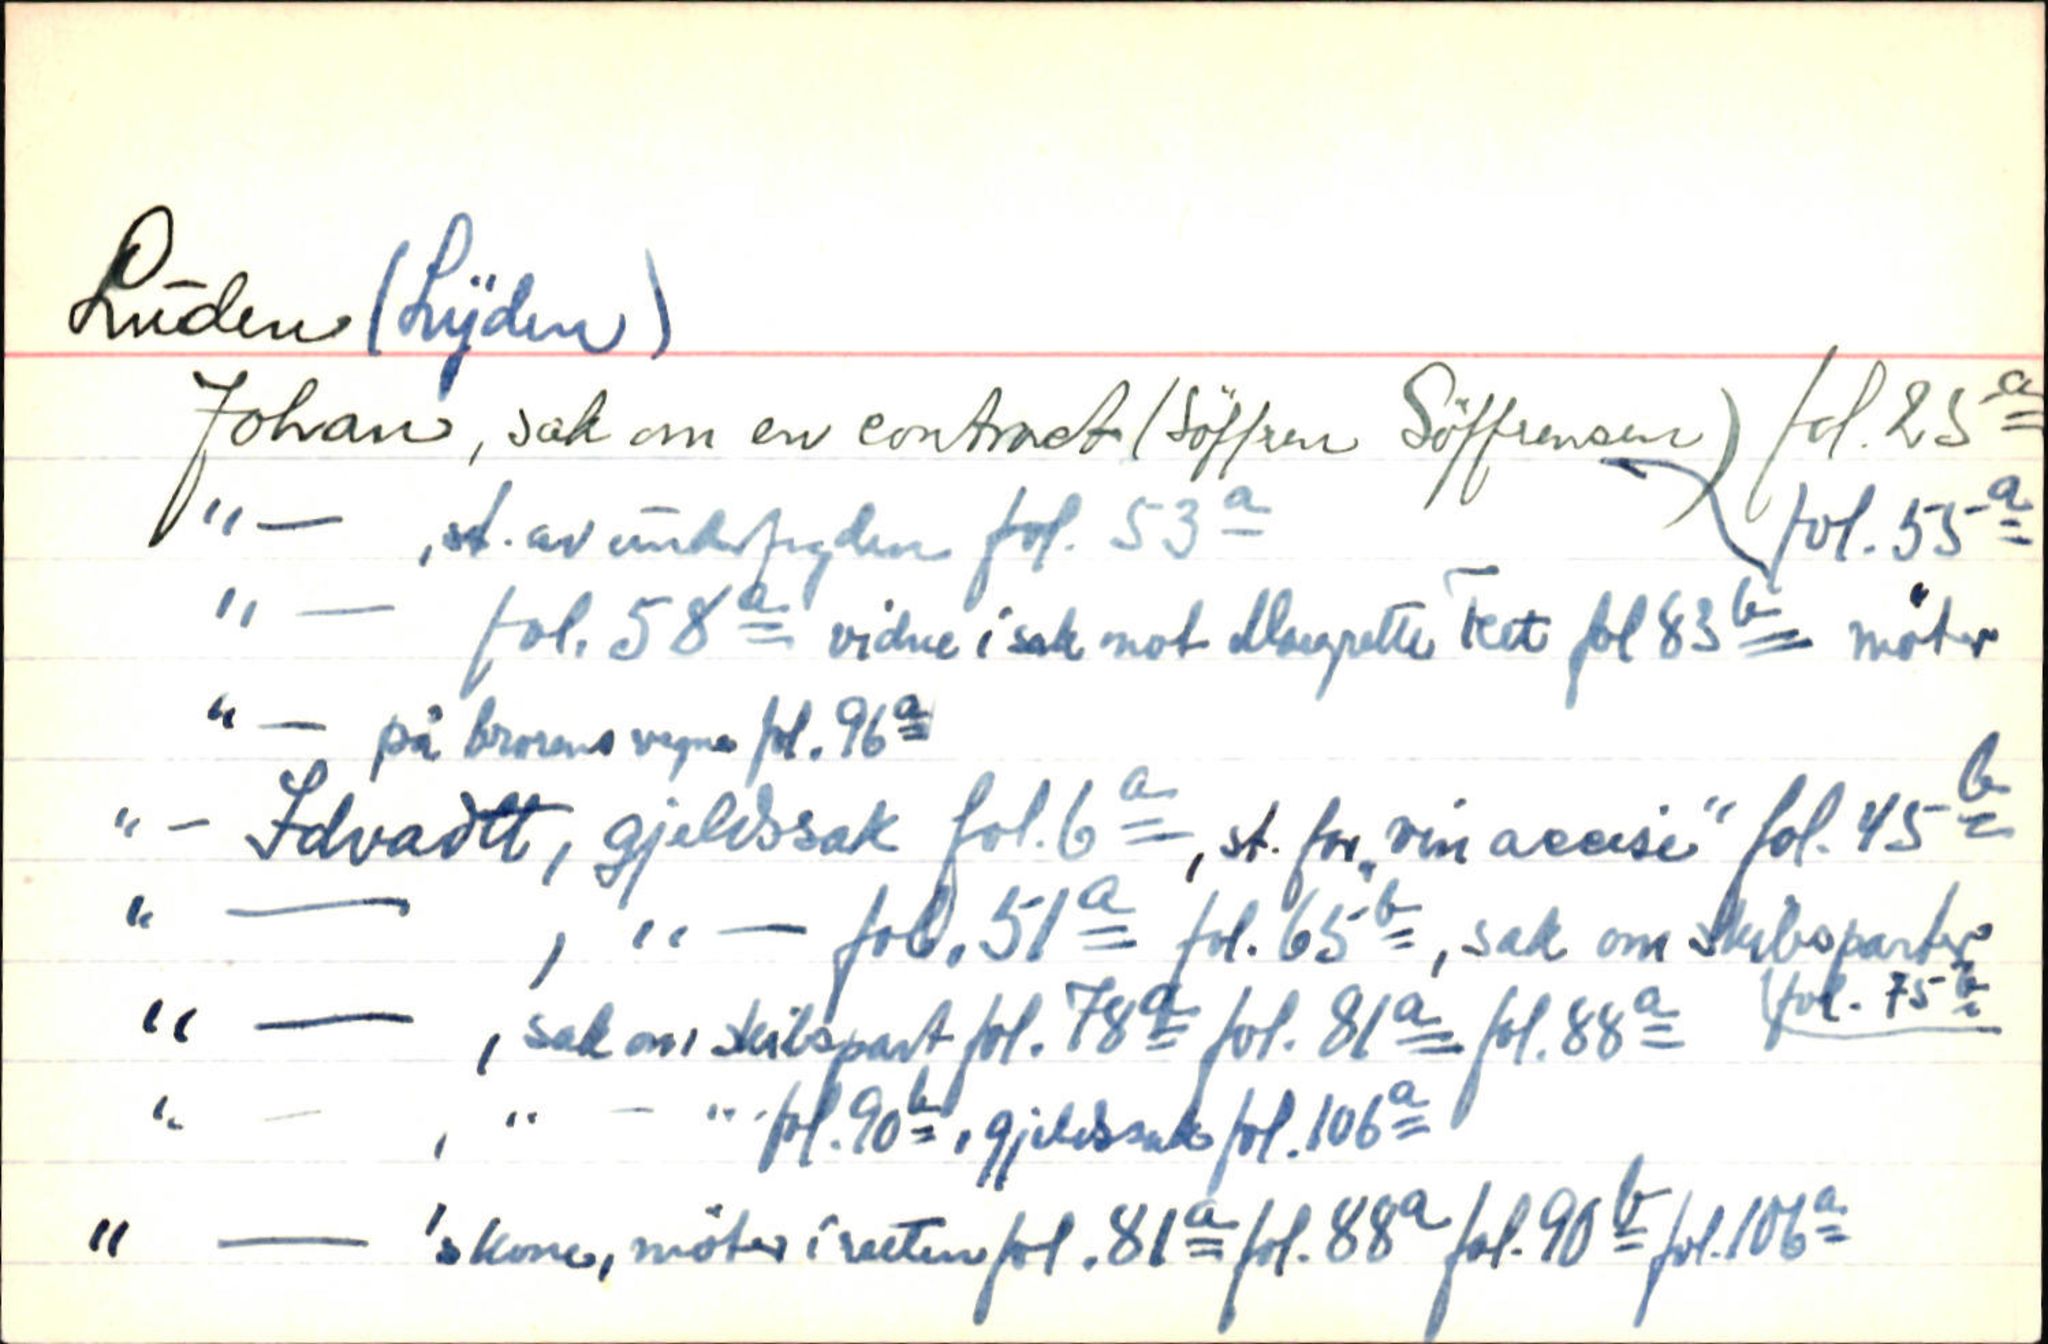 Lüden (Lÿden)
Johan, sak om en contract (Söffren Söffrensen) fol. 23ª
"— , st. av fol. 53ª fol. 55ª
"— fol. 58ª vidne i sak mot Margrette fol 83ᵇ möter
"— på brorens vegne fol. 96ª
"– Edvadtt, gjeldssak fol. 6ª, st. for „vin accise" fol. 45ᵇ
" — , "— fol. 51ª fol. 65ᵇ, sak om skibsparter
fol. 75ᵇ
" — , sak om skibspart fol. 78ª fol. 81ª fol. 88ª
" — , " — " fol. 90ᵇ, gjeldssak fol. 106ª
" — 's kone, möter i retten fol. 81ª fol. 88ª fol. 90ᵇ fol. 106ª